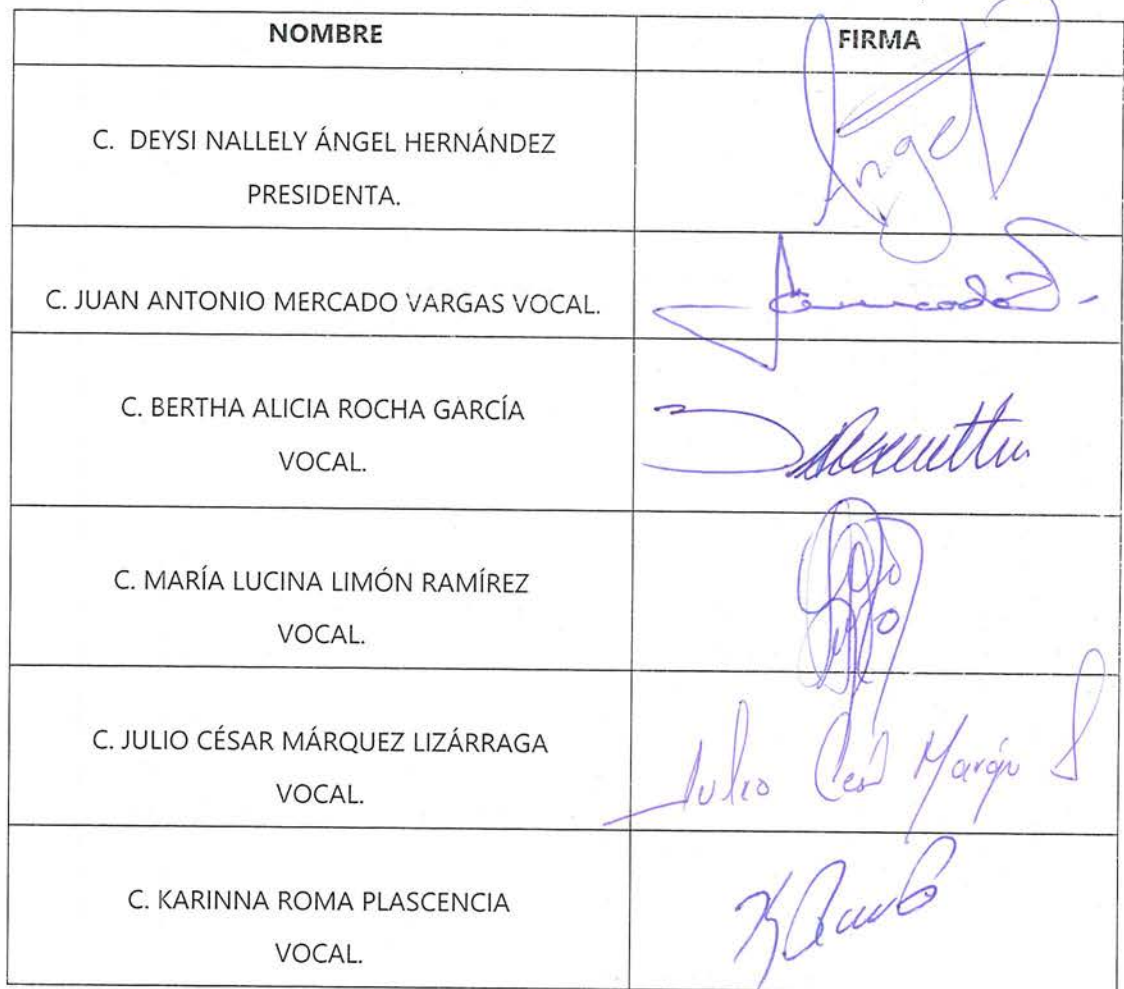 NOMBRE FIRMA
C. DEYSI NALLELY ÁNGEL HERNÁNDEZ
PRESIDENTA.
Angel
C. JUAN ANTONIO MERCADO VARGAS VOCAL.
C. BERTHA ALICIA ROCHA GARCÍA
VOCAL.
C. MARÍA LUCINA LIMÓN RAMÍREZ
VOCAL.
C. JULIO CÉSAR MÁRQUEZ LIZÁRRAGA
VOCAL.
Julio
C. KARINNA ROMA PLASCENCIA
VOCAL.